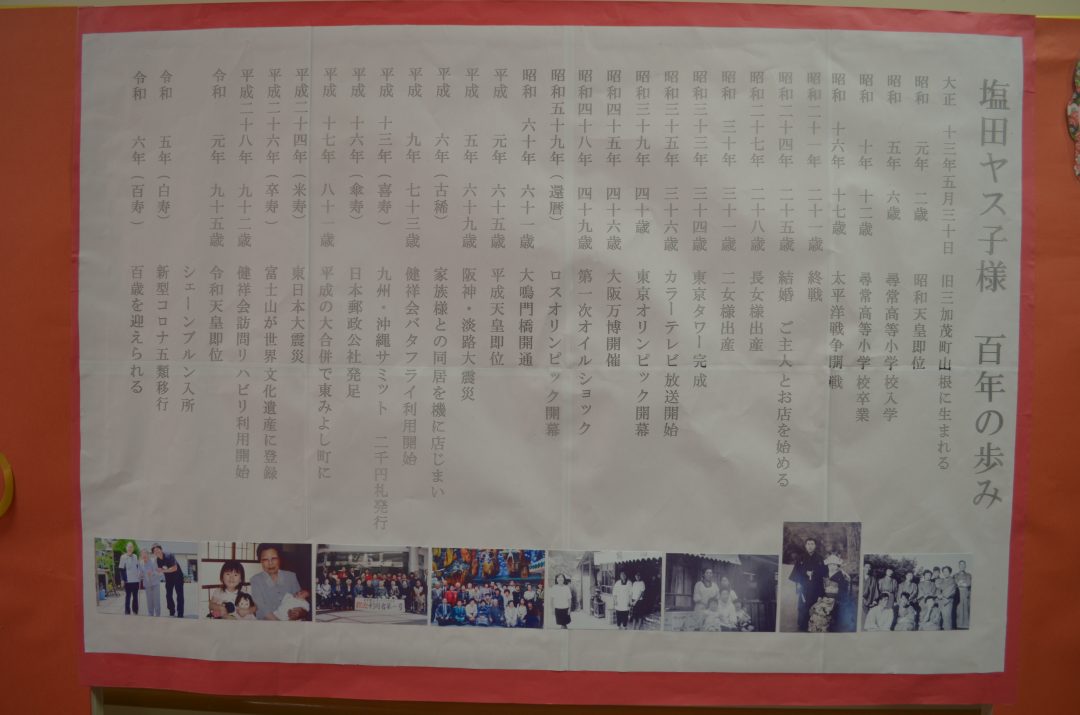 塩田ヤス子様　百年の歩み
大正　十三年五月三十日　旧三加茂町山根に生まれる
昭和　元年　二歳　昭和天皇即位
昭和　五年　六歳　尋常高等小学校入学
昭和　十年　十二歳　尋常高等小学校卒業
昭和　十六年　十七歳　太平洋戦争開戦
昭和二十一年　二十一歳　終戦
昭和二十四年　二十五歳　結婚　ご主人とお店を始める
昭和二十七年　二十八歳　長女様出産
昭和　三十年　三十一歳　二女様出産
昭和三十三年　三十四歳　東京タワー完成
昭和三十五年　三十六歳　カラーテレビ放送開始
昭和三十九年　四十歳　東京オリンピック開幕
昭和四十五年　四十六歳　大阪万博開催
昭和四十八年　四十九歳　第一次オイルショック
昭和五十九年（還暦）　ロスオリンピック開幕
昭和　六十年　六十一歳　大鳴門橋開通
平成　元年　六十五歳　平成天皇即位
平成　五年　六十九歳　阪神・淡路大震災
平成　六年（古稀）　家族様との同居を機に店じまい
平成　九年　七十三歳　健祥会バタフライ利用開始
平成　十三年（喜寿）　九州・沖縄サミット　二千円札発行
平成　十六年（傘寿）　日本郵政公社発足
平成　十七年　八十一歳　平成の大合併で東みよし町に
平成二十四年（米寿）　東日本大震災
平成二十六年（卒寿）　富士山が世界文化遺産に登録
平成二十八年　九十二歳　健祥会訪問リハビリ利用開始
令和　元年　九十五歳　令和天皇即位
シェーンブルン入所
令和　五年（白寿）　新型コロナ五類移行
令和　六年（百寿）　百歳を迎えられる